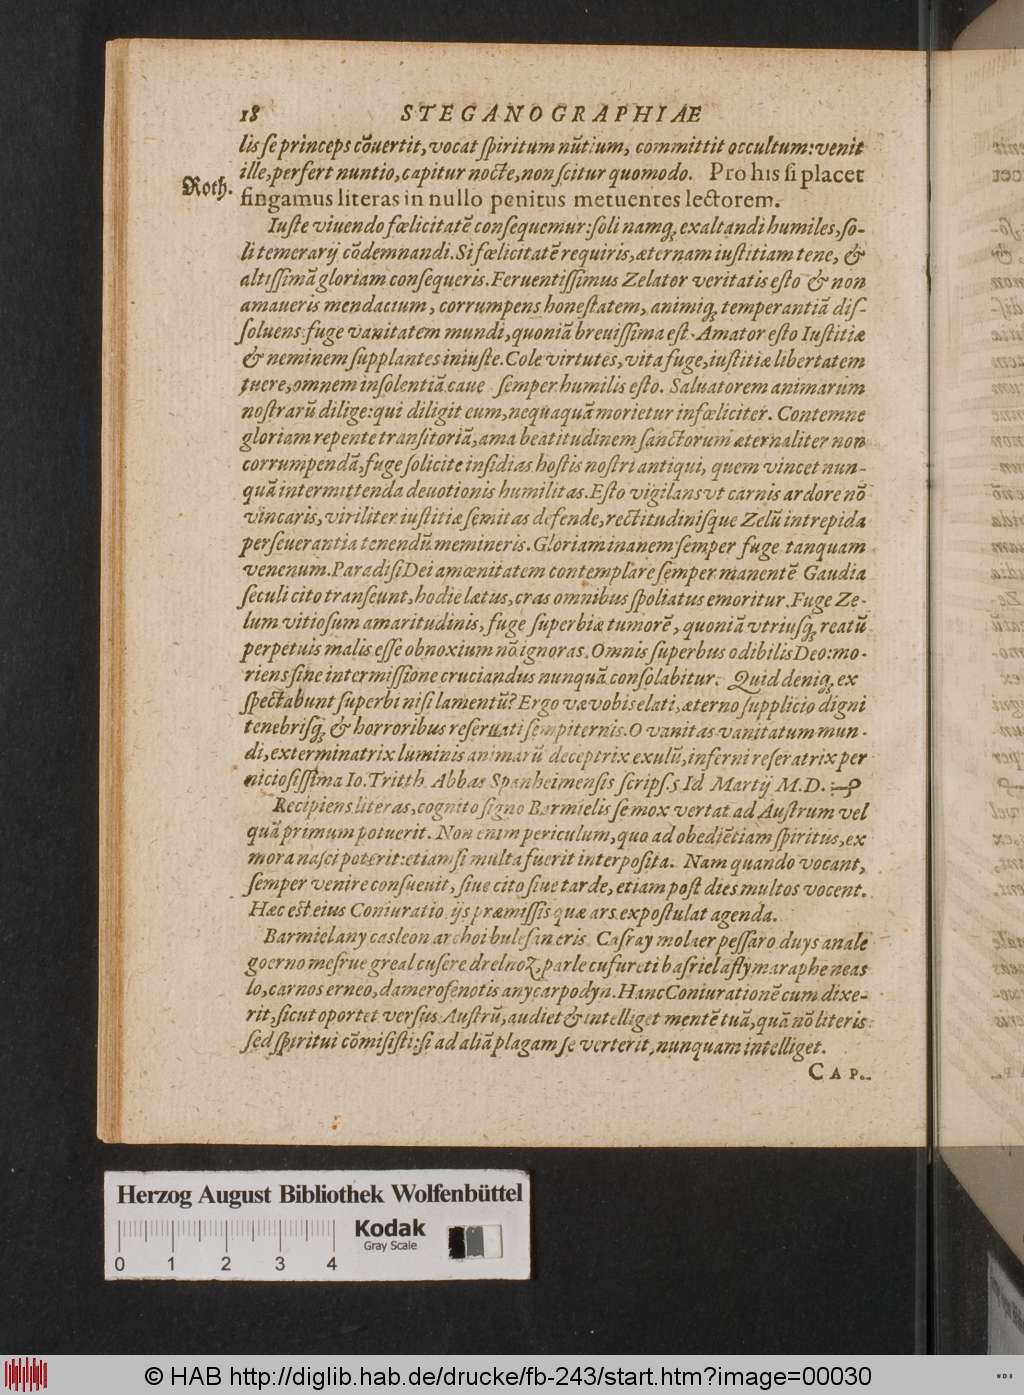 18 STEGANOGRAPHIAE
lis ſe princeps cõuertit, vocat ſpiritum nũtium, committit occultum: venit
ille, perfert nuntio, capitur nocte, non ſcitur quomodo. Pro his ſi placet
Roth.
fingamus literas in nullo penitus metuentes lectorem.
Iuſte viuendo fœlicitatẽ conſequemur: ſoli namq; exaltandi humiles, ſo-
li temerarij cõdemnandi. Si fœlicitatẽ requiris, æternam iuſtitiam tene, &
altiſſimã gloriam conſequeris. Feruentiſſimus Zelator veritatis eſto & non
amaueris mendacium, corrumpens honeſtatem, animiq; temperantiã diſ-
ſoluens: fuge vanitatem mundi, quoniã breuiſſima eſt. Amator eſto Iuſtitiæ
& neminem ſupplantes iniuſte. Cole virtutes, vita fuge, iuſtitiæ libertatem
tuere, omnem inſolentiã caue ſemper humilis eſto. Saluatorem animarum
noſtrarũ dilige: qui diligit eum, nequaquã morietur infœliciter. Contemne
gloriam repente tranſitoriã, ama beatitudinem ſanctorum æternaliter non
corrumpendã, fuge ſolicite inſidias hoſtis noſtri antiqui, quem vincet nun-
quã intermittenda deuotionis humilitas. Eſto vigilans vt carnis ardore nõ
vincaris, viriliter iuſtitiæ ſemitas defende, rectitudiniſque Zelũ intrepida
perſeuerantia tenendũ memineris. Gloriam inanem ſemper fuge tanquam
venenum. Paradiſi Dei amœnitatem contemplare ſemper manentẽ Gaudia
ſeculi cito tranſeunt, hodie lætus, cras omnibus ſpoliatus emoritur. Fuge Ze-
lum vitioſum amaritudinis, fuge ſuperbiæ tumorẽ, quoniã vtriuſq; reatũ
perpetuis malis eſſe obnoxium nõ ignoras. Omnis ſuperbus odibilis Deo: mo-
riens ſine intermiſſione cruciandus nunquã conſolabitur. Quid deniq; ex
ſpectabunt ſuperbi niſi lamentũ? Ergo væ vobis elati, æterno ſupplicio digni
tenebriſq; & horroribus reſeruati ſempiternis. O vanitas vanitatum mun-
di, exterminatrix luminis animarũ deceptrix exulũ, inferni reſeratrix per
nicioſiſſima Io. Tritth. Abbas Spanheimenſis ſcripſ. 5 Id Martij M.D.
Recipiens literas, cognito ſigno Barmielis ſe mox vertat ad Auſtrum vel
quã primum potuerit. Non enim periculum, quo ad obediẽtiam ſpiritus, ex
mora naſci poterit: etiam ſi multa fuerit interpoſita. Nam quando vocant,
ſemper venire conſueuit, ſiue cito ſiue tarde, etiam poſt dies multos vocent.
Hæc eſt eius Coniuratio ijs præmiſſis quæ ars expoſtulat agenda.
Barmiel any casleon archoi buleſan eris. Caſray molaer peſſaro duys anale
goerno meſrue greal cuſere drelnoz, parle cufureti baſriel aflymaraphe neas
lo, carnos erneo, damerosenotis anycarpodyn. Hanc Coniurationẽ cum dixe-
rit, ſicut oportet verſus Auſtrũ, audiet & intelliget mentẽ tuã, quã nõ literis
ſed ſpiritui cõmiſiſti: ſi ad aliã plagam ſe verterit, nunquam intelliget.
CAP.
Herzog August Bibliothek Wolfenbüttel
0 1 2 3 4
Kodak
Gray Scale
© HAB http://diglib.hab.de/drucke/fb-243/start.htm?image=00030